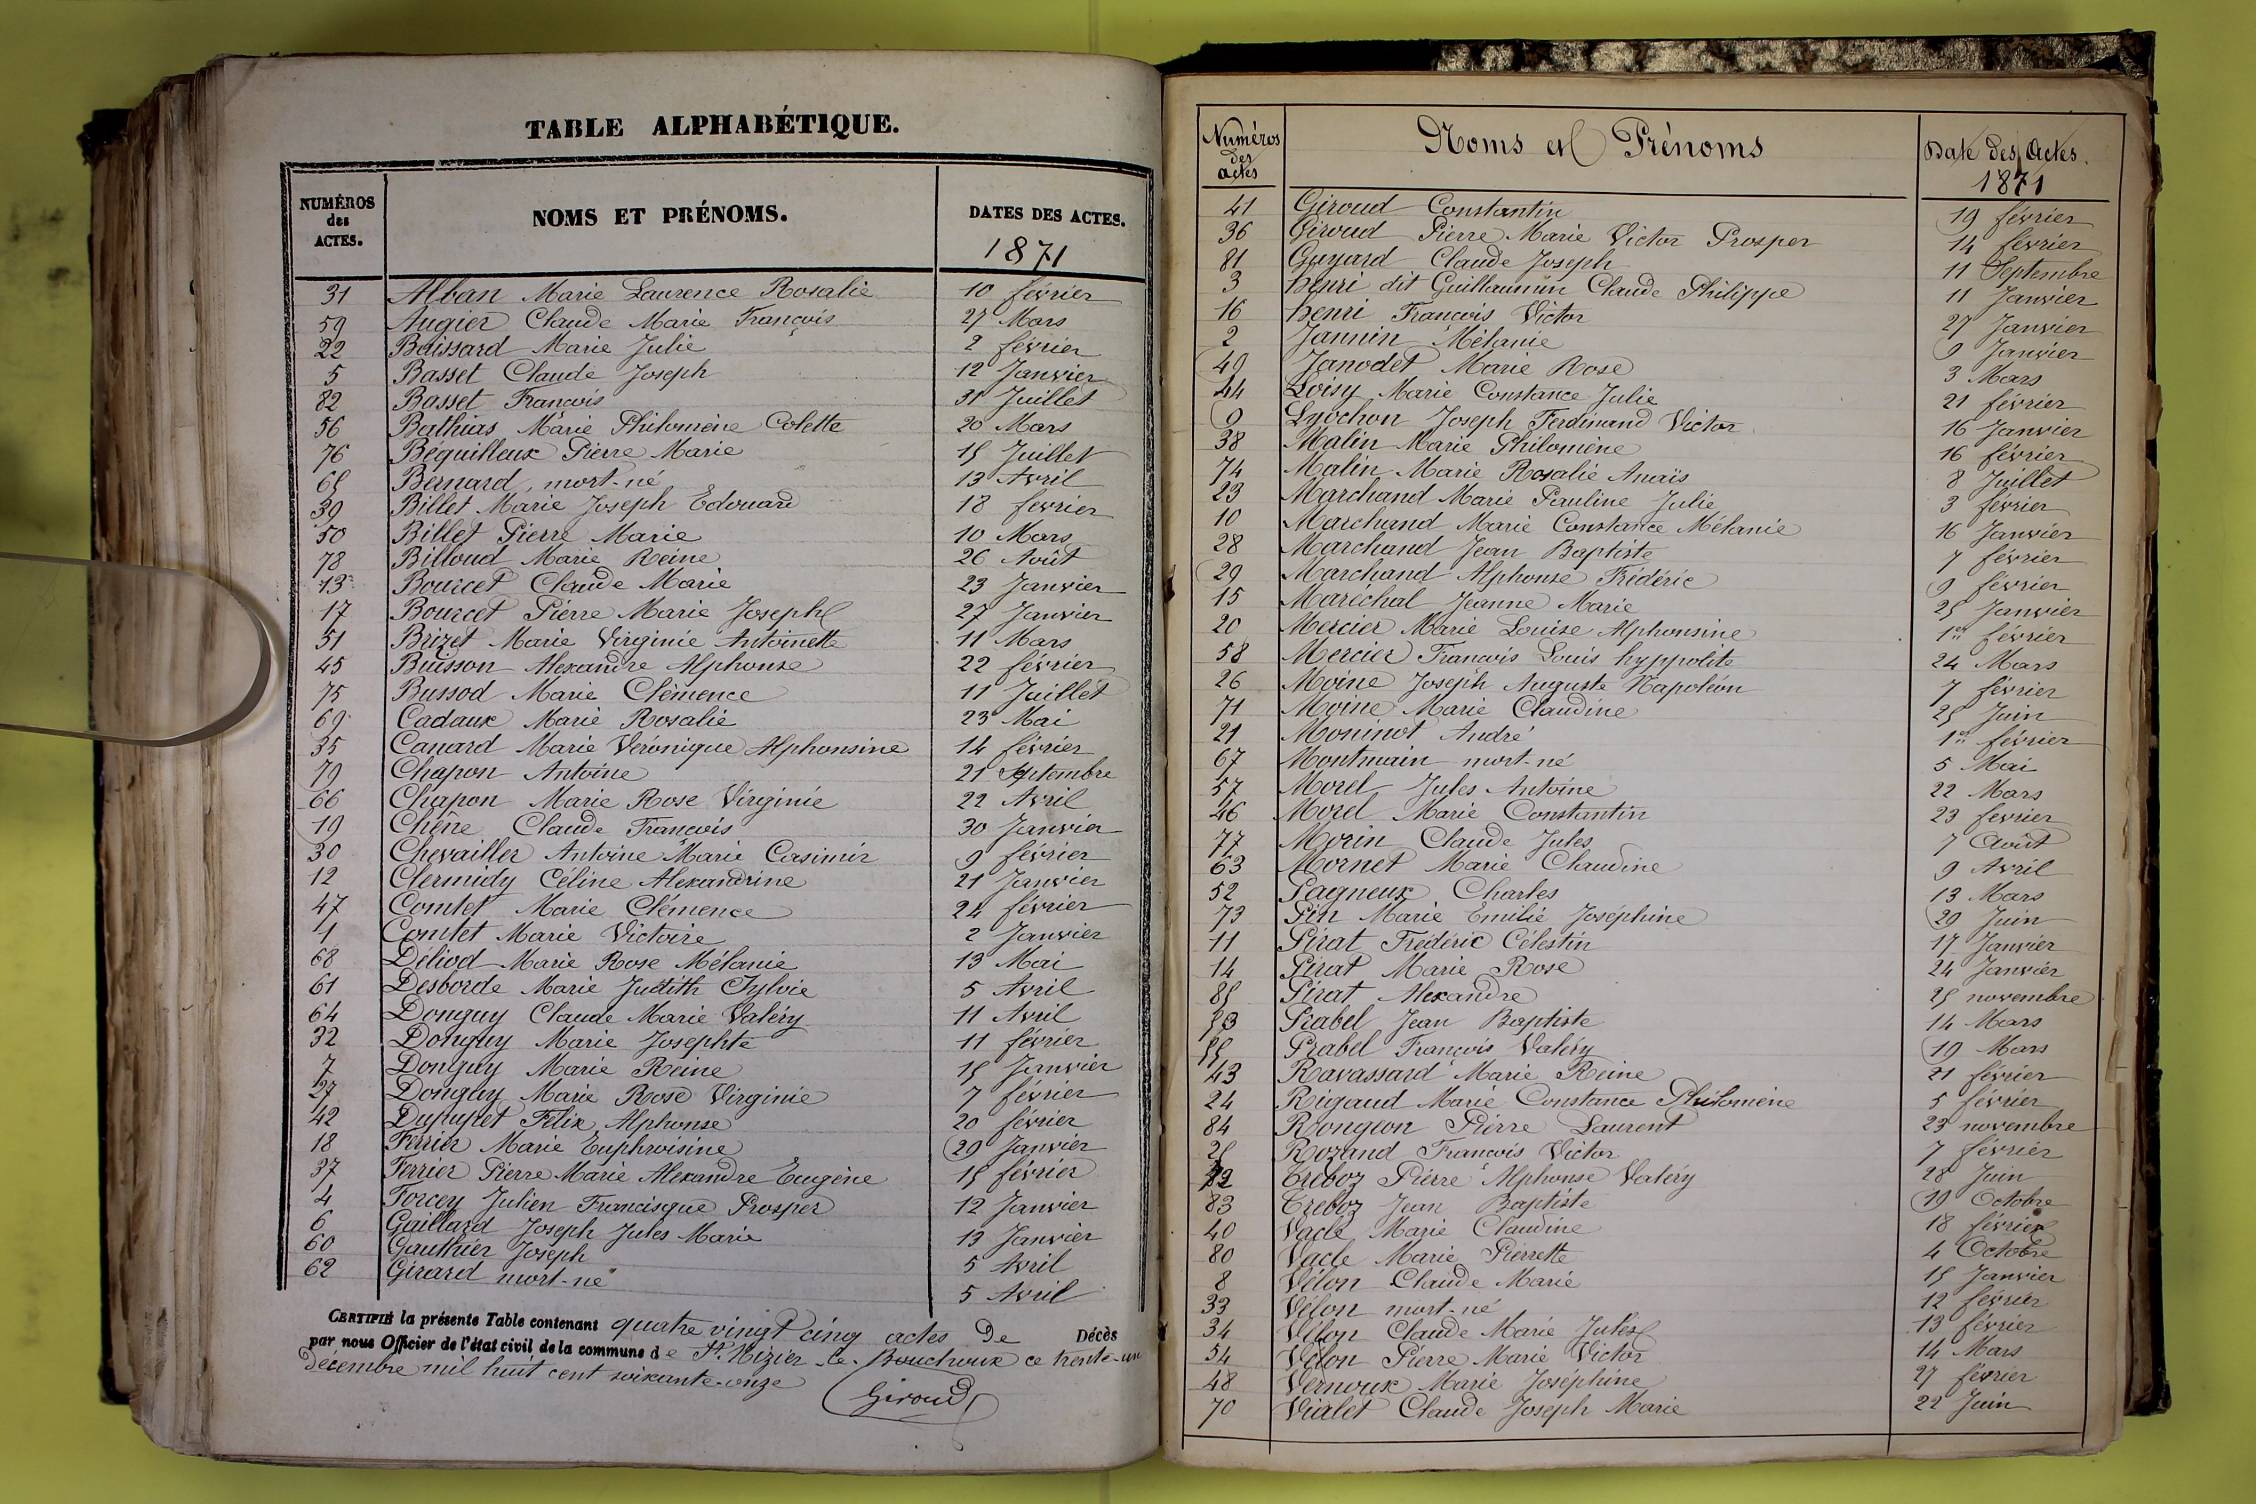 TABLE ALPHABÉTIQUE.
NUMÉROS des ACTES. NOMS ET PRÉNOMS. DATES DES ACTES.
1871
31 Alban Marie Laurence Rosalie 10 février
59 Augier Claude Marie François 27 Mars
22 Baissard Marie Julie 2 février
5 Basset Claude Joseph 12 Janvier
82 Basset François 31 Juillet
56 Bathias Marie Philomène Colette 20 Mars
76 Béquilleux Pierre Marie 15 Juillet
65 Bernard, mort-né 13 Avril
39 Billet Marie Joseph Edouard 18 février
50 Billet Pierre Marie 10 Mars
78 Billoud Marie Reine 26 Août
13 Bourcet Claude Marie 23 Janvier
17 Bourcet Pierre Marie Joseph 27 Janvier
51 Brizet Marie Virginie Antoinette 11 Mars
45 Buisson Alexandre Alphonse 22 février
75 Bussod Marie Clémence 11 Juillet
69 Cadaux Marie Rosalie 23 Mai
35 Canard Marie Véronique Alphonsine 14 février
79 Chapon Antoine 21 Septembre
66 Chapon Marie Rose Virginie 22 Avril
19 Chêne Claude François 30 Janvier
30 Chevailler Antoine Marie Casimir 9 février
12 Clermidy Céline Alexandrine 21 Janvier
47 Comtet Marie Clémence 24 février
1 Comtet Marie Victoire 2 Janvier
68 Déliod Marie Rose Mélanie 13 Mai
61 Desborde Marie Judith Sylvie 5 Avril
64 Donguy Claude Marie Valéry 11 Avril
32 Donguy Marie Josephte 11 février
7 Donguy Marie Reine 15 Janvier
27 Donguy Marie Rose Virginie 7 février
42 Dupuget Félix Alphonse 20 février
18 Ferrier Marie Euphroisine 29 Janvier
37 Ferrier Pierre Marie Alexandre Eugène 15 février
4 Forcey Julien Francisque Prosper 12 Janvier
6 Gaillard Joseph Jules Marie 13 Janvier
60 Gauthier Joseph 5 Avril
62 Girard mort-né 5 Avril
CERTIFIÉ la présente Table contenant quatre vingt cinq actes de Décès
par nous Officier de l'état civil de la commune de St. Nizier-le-Bouchoux ce trente-un
décembre mil huit cent soixante-onze
Giroud
Numéros des actes Noms et Prénoms Date des Actes.
1871
41 Giroud Constantin 19 février
36 Giroud Pierre Marie Victor Prosper 14 février
81 Guyard Claude Joseph 11 Septembre
3 henri dit Guillaumin Claude Philippe 11 Janvier
16 henri François Victor 27 Janvier
2 Jannin Mélanie 9 Janvier
49 Janodet Marie Rose 3 Mars
44 Loisy Marie Constance Julie 21 février
9 Lyochon Joseph Ferdinand Victor 16 Janvier
38 Malin Marie Philomène 16 février
74 Malin Marie Rosalie Anaïs 8 Juillet
23 Marchand Marie Pauline Julie 3 février
10 Marchand Marie Constance Mélanie 16 Janvier
28 Marchand Jean Baptiste 7 février
29 Marchand Alphonse Frédéric 9 février
15 Maréchal Jeanne Marie 25 Janvier
20 Mercier Marie Louise Alphonsine 1er février
58 Mercier François Louis hyppolite 24 Mars
26 Moine Joseph Auguste Napoléon 7 février
71 Moine Marie Claudine 25 Juin
21 Moninot André 1er février
67 Montmain mort-né 5 Mai
57 Morel Jules Antoine 22 Mars
46 Morel Marie Constantin 23 février
77 Morin Claude Jules 7 Août
63 Mornet Marie Claudine 9 Avril
52 Pagneux Charles 13 Mars
73 Pin Marie Emilie Joséphine 29 Juin
11 Pirat Frédéric Célestin 17 Janvier
14 Pirat Marie Rose 24 Janvier
85 Pirat Alexandre 25 novembre
53 Prabel Jean Baptiste 14 Mars
55 Prabel François Valéry 19 Mars
43 Ravassard Marie Reine 21 février
24 Rigaud Marie Constance Philomène 5 février
84 Rongeon Pierre Laurent 23 novembre
25 Rozand François Victor 7 février
72 Treboz Pierre Alphonse Valéry 28 Juin
83 Treboz Jean Baptiste 19 Octobre
40 Vacle Marie Claudine 18 février
80 Vacle Marie Pierrette 4 Octobre
8 Vélon Claude Marie 15 Janvier
33 Vélon mort-né 12 février
34 Vélon Claude Marie Jules 13 février
54 Vélon Pierre Marie Victor 14 Mars
48 Vernoux Marie Joséphine 27 février
70 Vialet Claude Joseph Marie 22 Juin